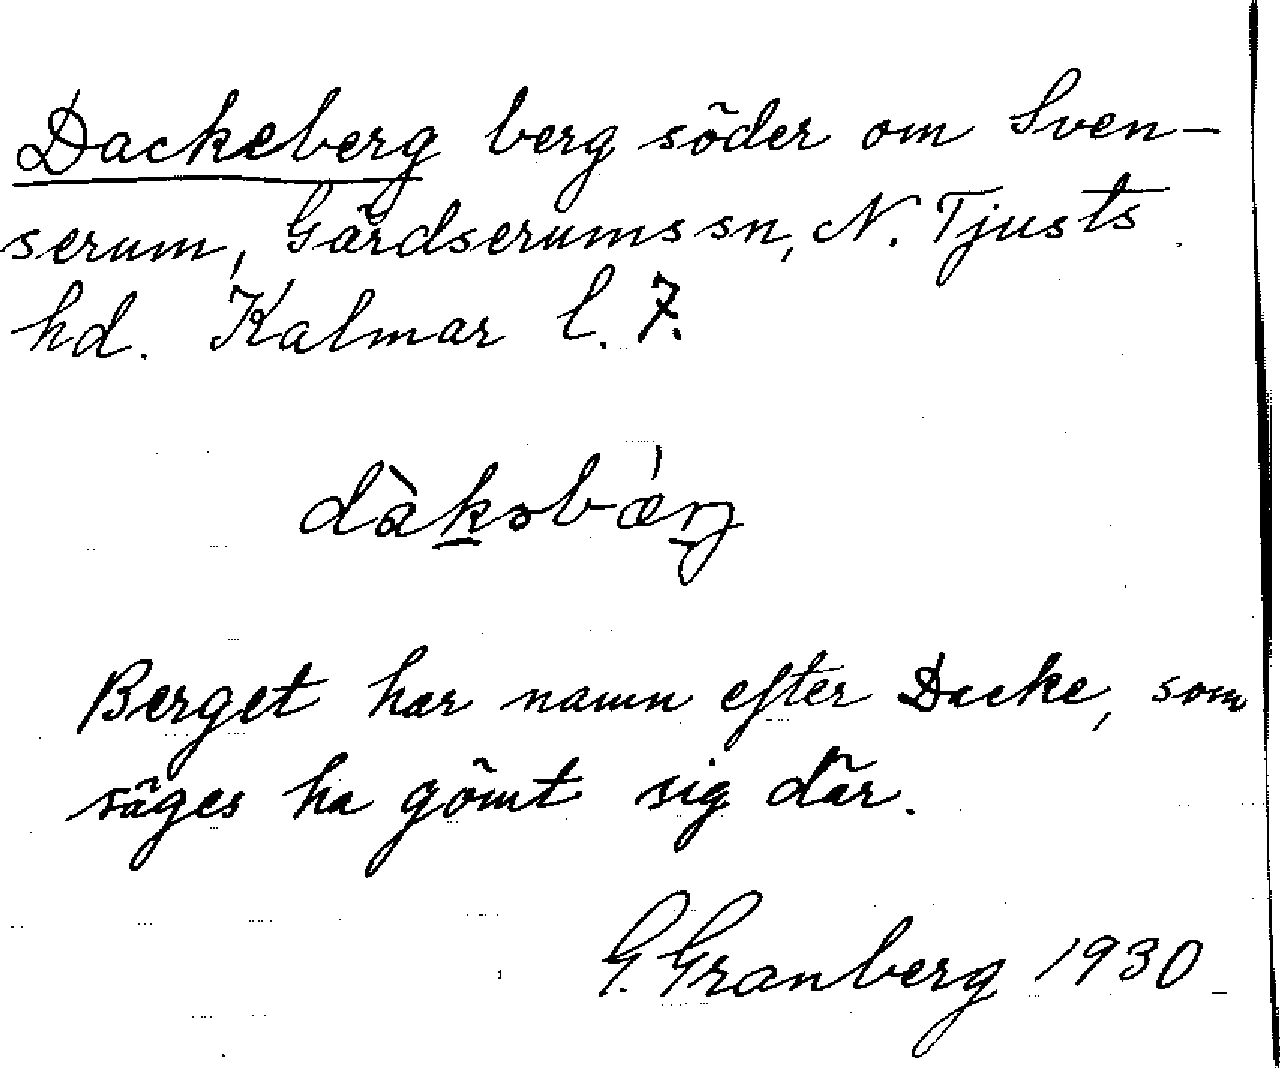 Dackeberg berg söder om Sven-
serum, Gärdserums sn, N. Tjusts
hd. Kalmar l. 7.
dàkəbærj
Berget har namn efter Dacke, som
säges ha gömt sig där.
G. Granberg 1930